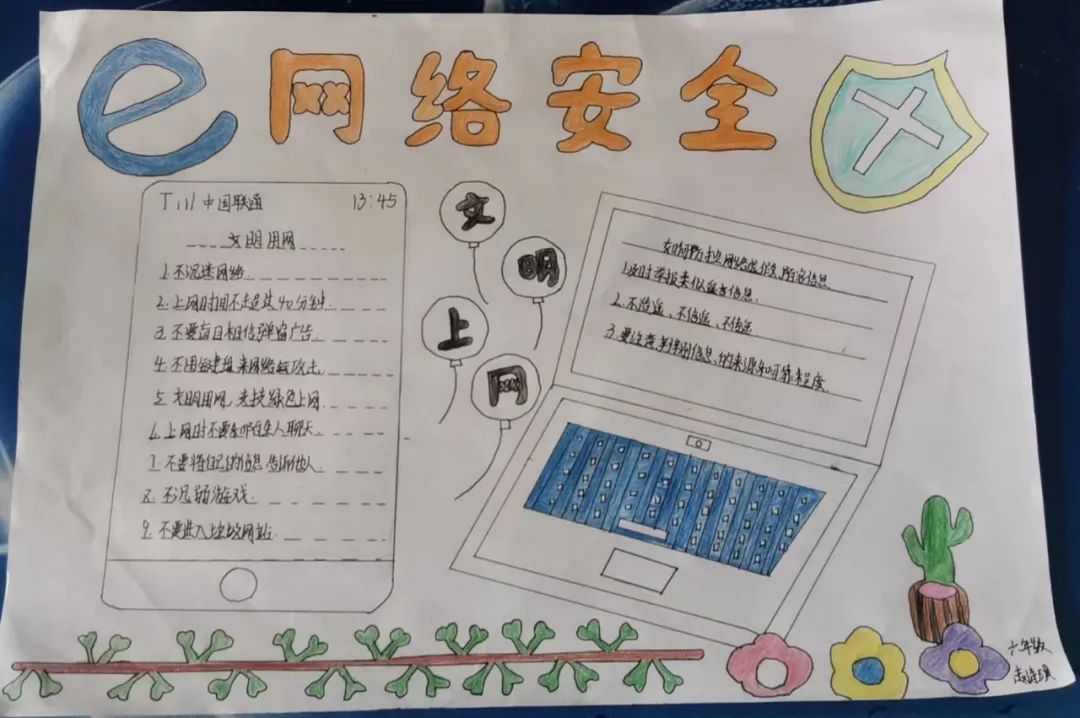 e 网络安全
中国联通 13:45
文明用网
1. 不沉迷网络.
2. 上网时间不超过40分钟.
3. 不要盲目相信弹窗广告.
4. 不用键盘来网络攻击.
5. 文明用网, 支持绿色上网
6. 上网时不要和陌生人聊天.
7. 不要将自己的信息告诉他人.
8. 不沉溺游戏.
9. 不要进入垃圾网站.
文
明
上
网
如何防护网络虚假、有害信息.
1. 及时举报类似谣言信息.
2. 不造谣、不信谣、不传谣
3. 要注意判别信息的来源和可靠程度.
六年级